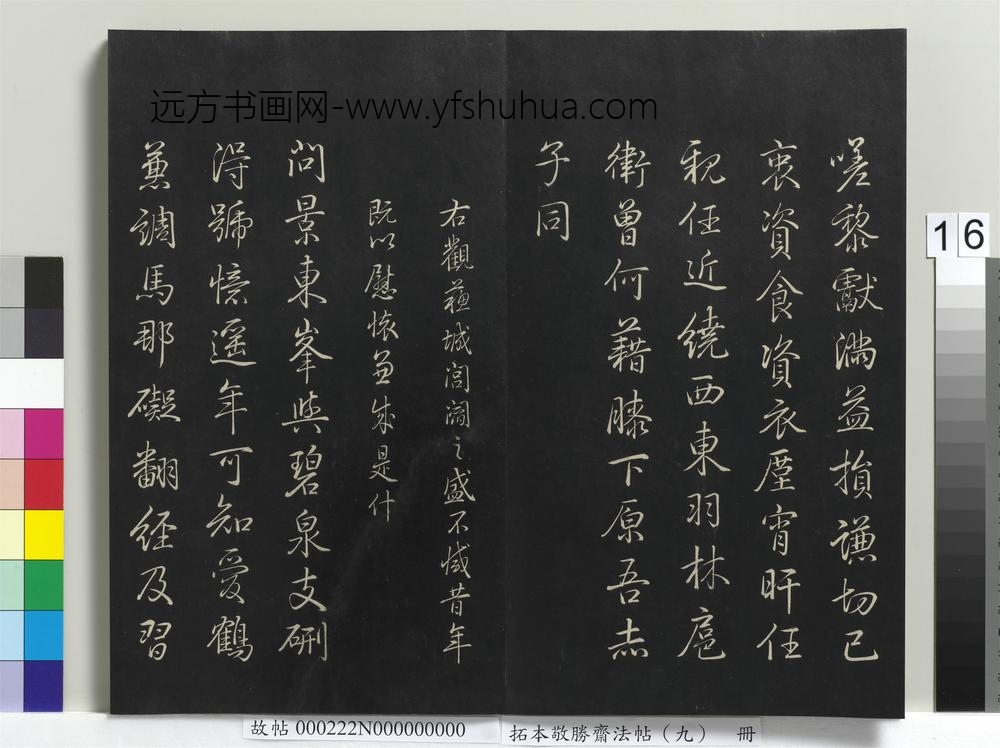 远方书画网-www.yfshuhua.com
嗟黎獻滿益損謙切已
衷資食資衣廑宵旰任
親任近繞西東羽林扈
衛曾何藉膝下原吾赤
子同
右觀蘇城閭閻之盛不減昔年
既以慰懷兼成是什
問景東峯與碧泉支硎
得號憶遥年可知愛鶴
兼調馬那礙翻經及習
16
故帖 000222N000000000
拓本敬勝齋法帖（九） 冊